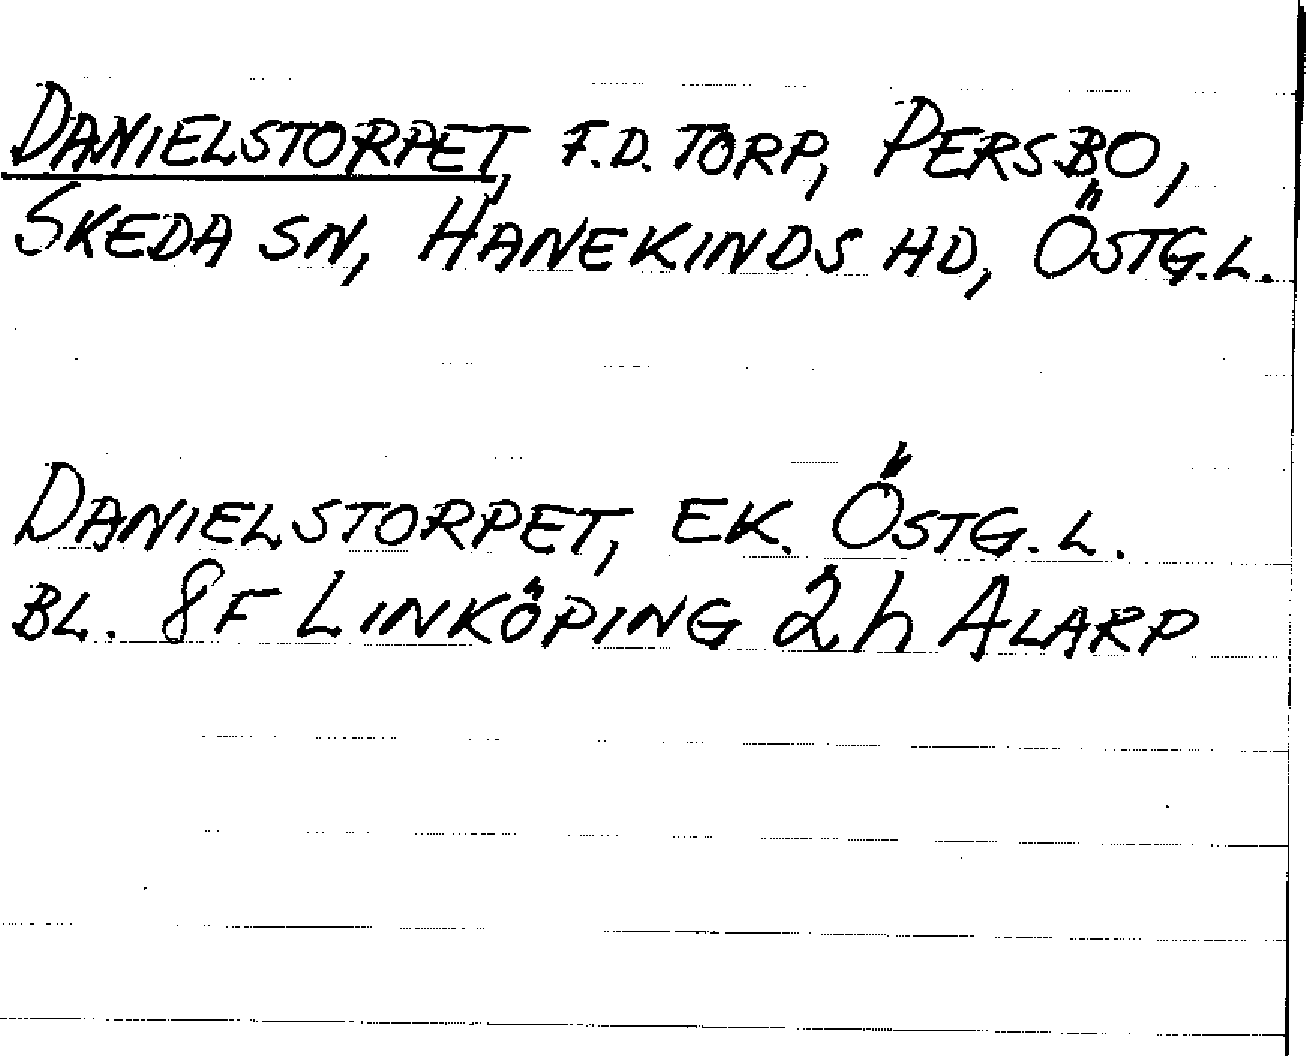 DANIELSTORPET, F.D. TORP, PERSBO,
SKEDA SN, HANEKINDS HD, ÖSTG.L.
DANIELSTORPET, EK. ÖSTG.L.
BL. 8F LINKÖPING 2h ALARP